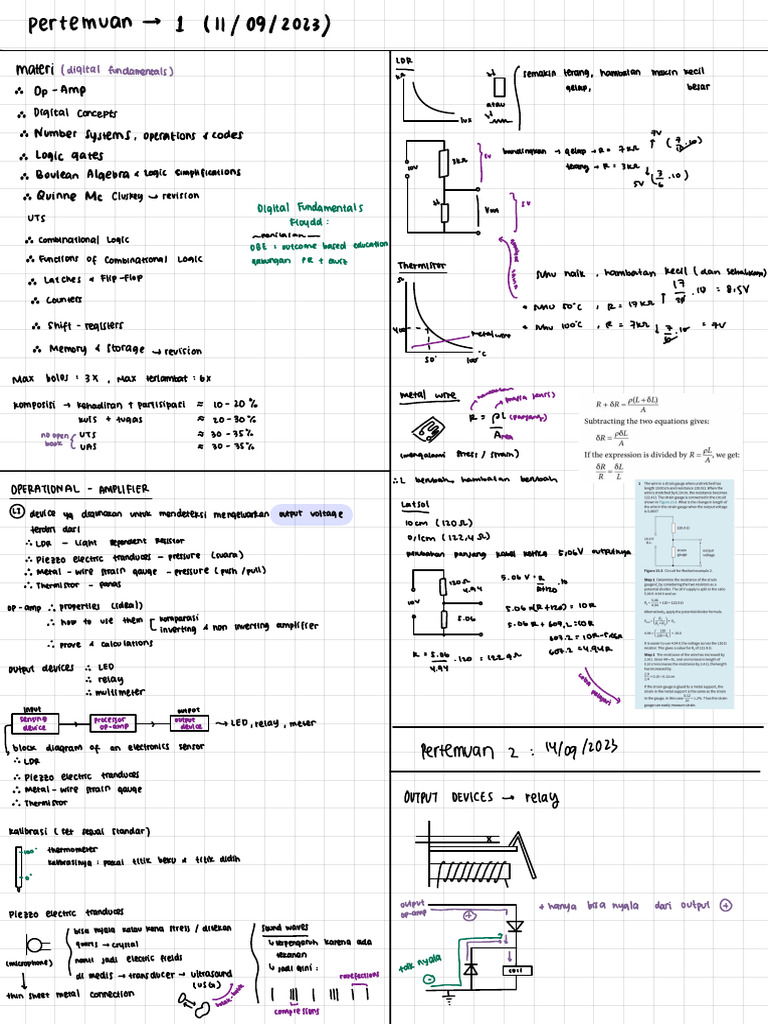 pertemuan → 1 (11/09/2023)
materi (digital fundamentals)
∴ Op-Amp
∴ Digital Concepts
∴ Number Systems, operations & codes
∴ Logic gates
∴ Boulean Algebra & Logic Simplifications
∴ Quinne Mc Cluskey → revision
UTS
∴ Combinational Logic
∴ Functions of Combinational Logic
∴ Latches & Flip-Flop
∴ Counters
∴ Shift-registers
∴ Memory & Storage → revision
Digital Fundamentals
Floydd :
OBE : outcome based education
gabungan PR + quiz
Max bolos : 3x , Max terlambat : 6x
komposisi → kehadiran + partisipasi ≈ 10-20%
kuis + tugas ≈ 20-30%
no open book
UTS ≈ 30-35%
UAS ≈ 30-35%
OPERATIONAL - AMPLIFIER
device yg digunakan untuk mendeteksi mengeluarkan output voltage
terdiri dari
∴ LDR - Light Dependent Resistor
∴ Piezzo electric tranduces - pressure (suara)
∴ Metal-wire strain gauge - pressure (push/pull)
∴ Thermistor - panas
op-amp ∴ properties (ideal)
∴ how to use them
komparasi
inverting & non inverting amplifier
∴ prove & calculations
output devices ∴ LED
∴ relay
∴ multimeter
INPUT
sensing device
processor op-amp
OUTPUT
output device
→ LED, relay, meter
block diagram of an electronics sensor
∴ LDR
∴ Piezzo electric tranduces
∴ Metal-wire strain gauge
∴ Thermistor
kalibrasi (set sesuai standar)
100°
0°
thermometer
kalibrasinya : pakai titik beku & titik didih
Piezzo electric tranduces
(microphone)
bisa nyala kalau kena stress / ditekan
quartz → crystal
nanti jadi electric fields
di medis → transducer → ultrasound
(USG)
bolak-balik
thin sheet metal connection
sound waves
↳ terpengaruh karena ada
tekanan
↳ jadi gini :
rarefactions
compressions
LDR
kΩ
lux
atau
semakin terang, hambatan makin kecil
gelap, besar
10V
3kΩ
5V
Vout
5V
bandingkan → gelap → R = 7kΩ
7V
terang → R = 3kΩ
5V (3/6 . 10)
Thermistor
400
50°
100
°C
metal wire
suhu naik, hambatan kecil (dan sebaliknya)
• suhu 50°C , R = 17kΩ
17/20 . 10 = 8.5V
• suhu 100°C , R = 7kΩ
7/10 . 10 = 7V
metal wire
R = ρL (panjang)
Area
(mengalami stress / strain)
∴ L berubah, hambatan berubah
R + δR = ρ(L + δL)/A
Subtracting the two equations gives:
δR = ρδL/A
If the expression is divided by R = ρL/A, we get:
δR/R = δL/L
Latsol
10cm (120Ω)
0,1cm (122,4Ω)
perubahan panjang kabel ketika 5,06V outputnya
10V
120Ω
4.94
5.06
R = 5.06/4.94 . 120 = 122.9Ω
5.06 V = R/R+120 . 10
5.06(R+120) = 10R
5.06R + 607,2 = 10R
607.2 = 10R - 5.06R
607.2 = 4.94R
coba pelajari
pertemuan 2 : 14/09/2023
OUTPUT DEVICES → relay
output
op-amp
+
+ hanya bisa nyala dari output +
tdk nyala
−
coil